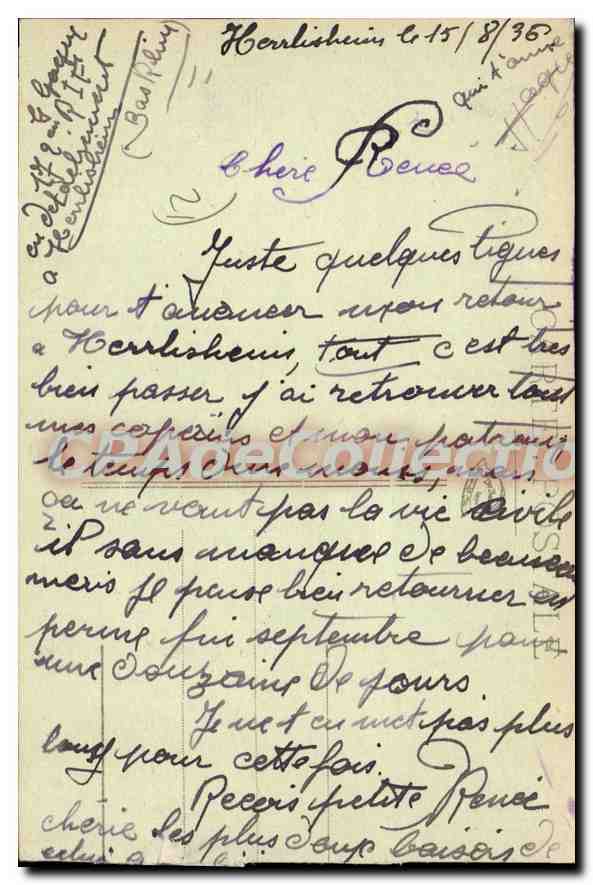 Herrlisheim le 15/8/36
Jacques
172em R I F
en detachement
a Herrlisheim
(Bas Rhin)
qui t'aime
Jacques
Chere Renée
(12)
Juste quelques lignes
pour t'anoncer mon retour
a Herrlisheim, tout c'est tres
bien passer j'ai retrouver tous
mes copains et mon
le temps mais
ça ne vaut pas la vie civile
il sans manque de beaucoup
mais je pense bien retourner en
perme fin septembre pour
une douzaine de jours
Je ne t'en met pas plus
long pour cette fois.
Recois petite Renée
chérie les plus doux baisers de
celui
CARTE POSTALE
CPApeCollection